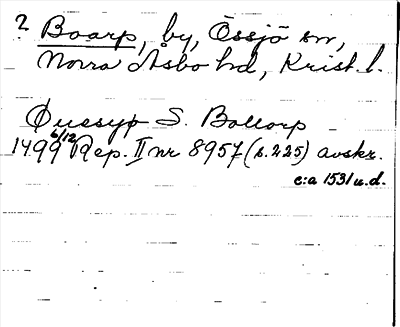 ? Boarp, by, Össjö sn,
Norra Åsbo hd, Krist. l.
Qussyø S. Bollorp
1499 6/12 Rep. II nr 8957 (s. 225) avskr.
c:a 1531 u.d.